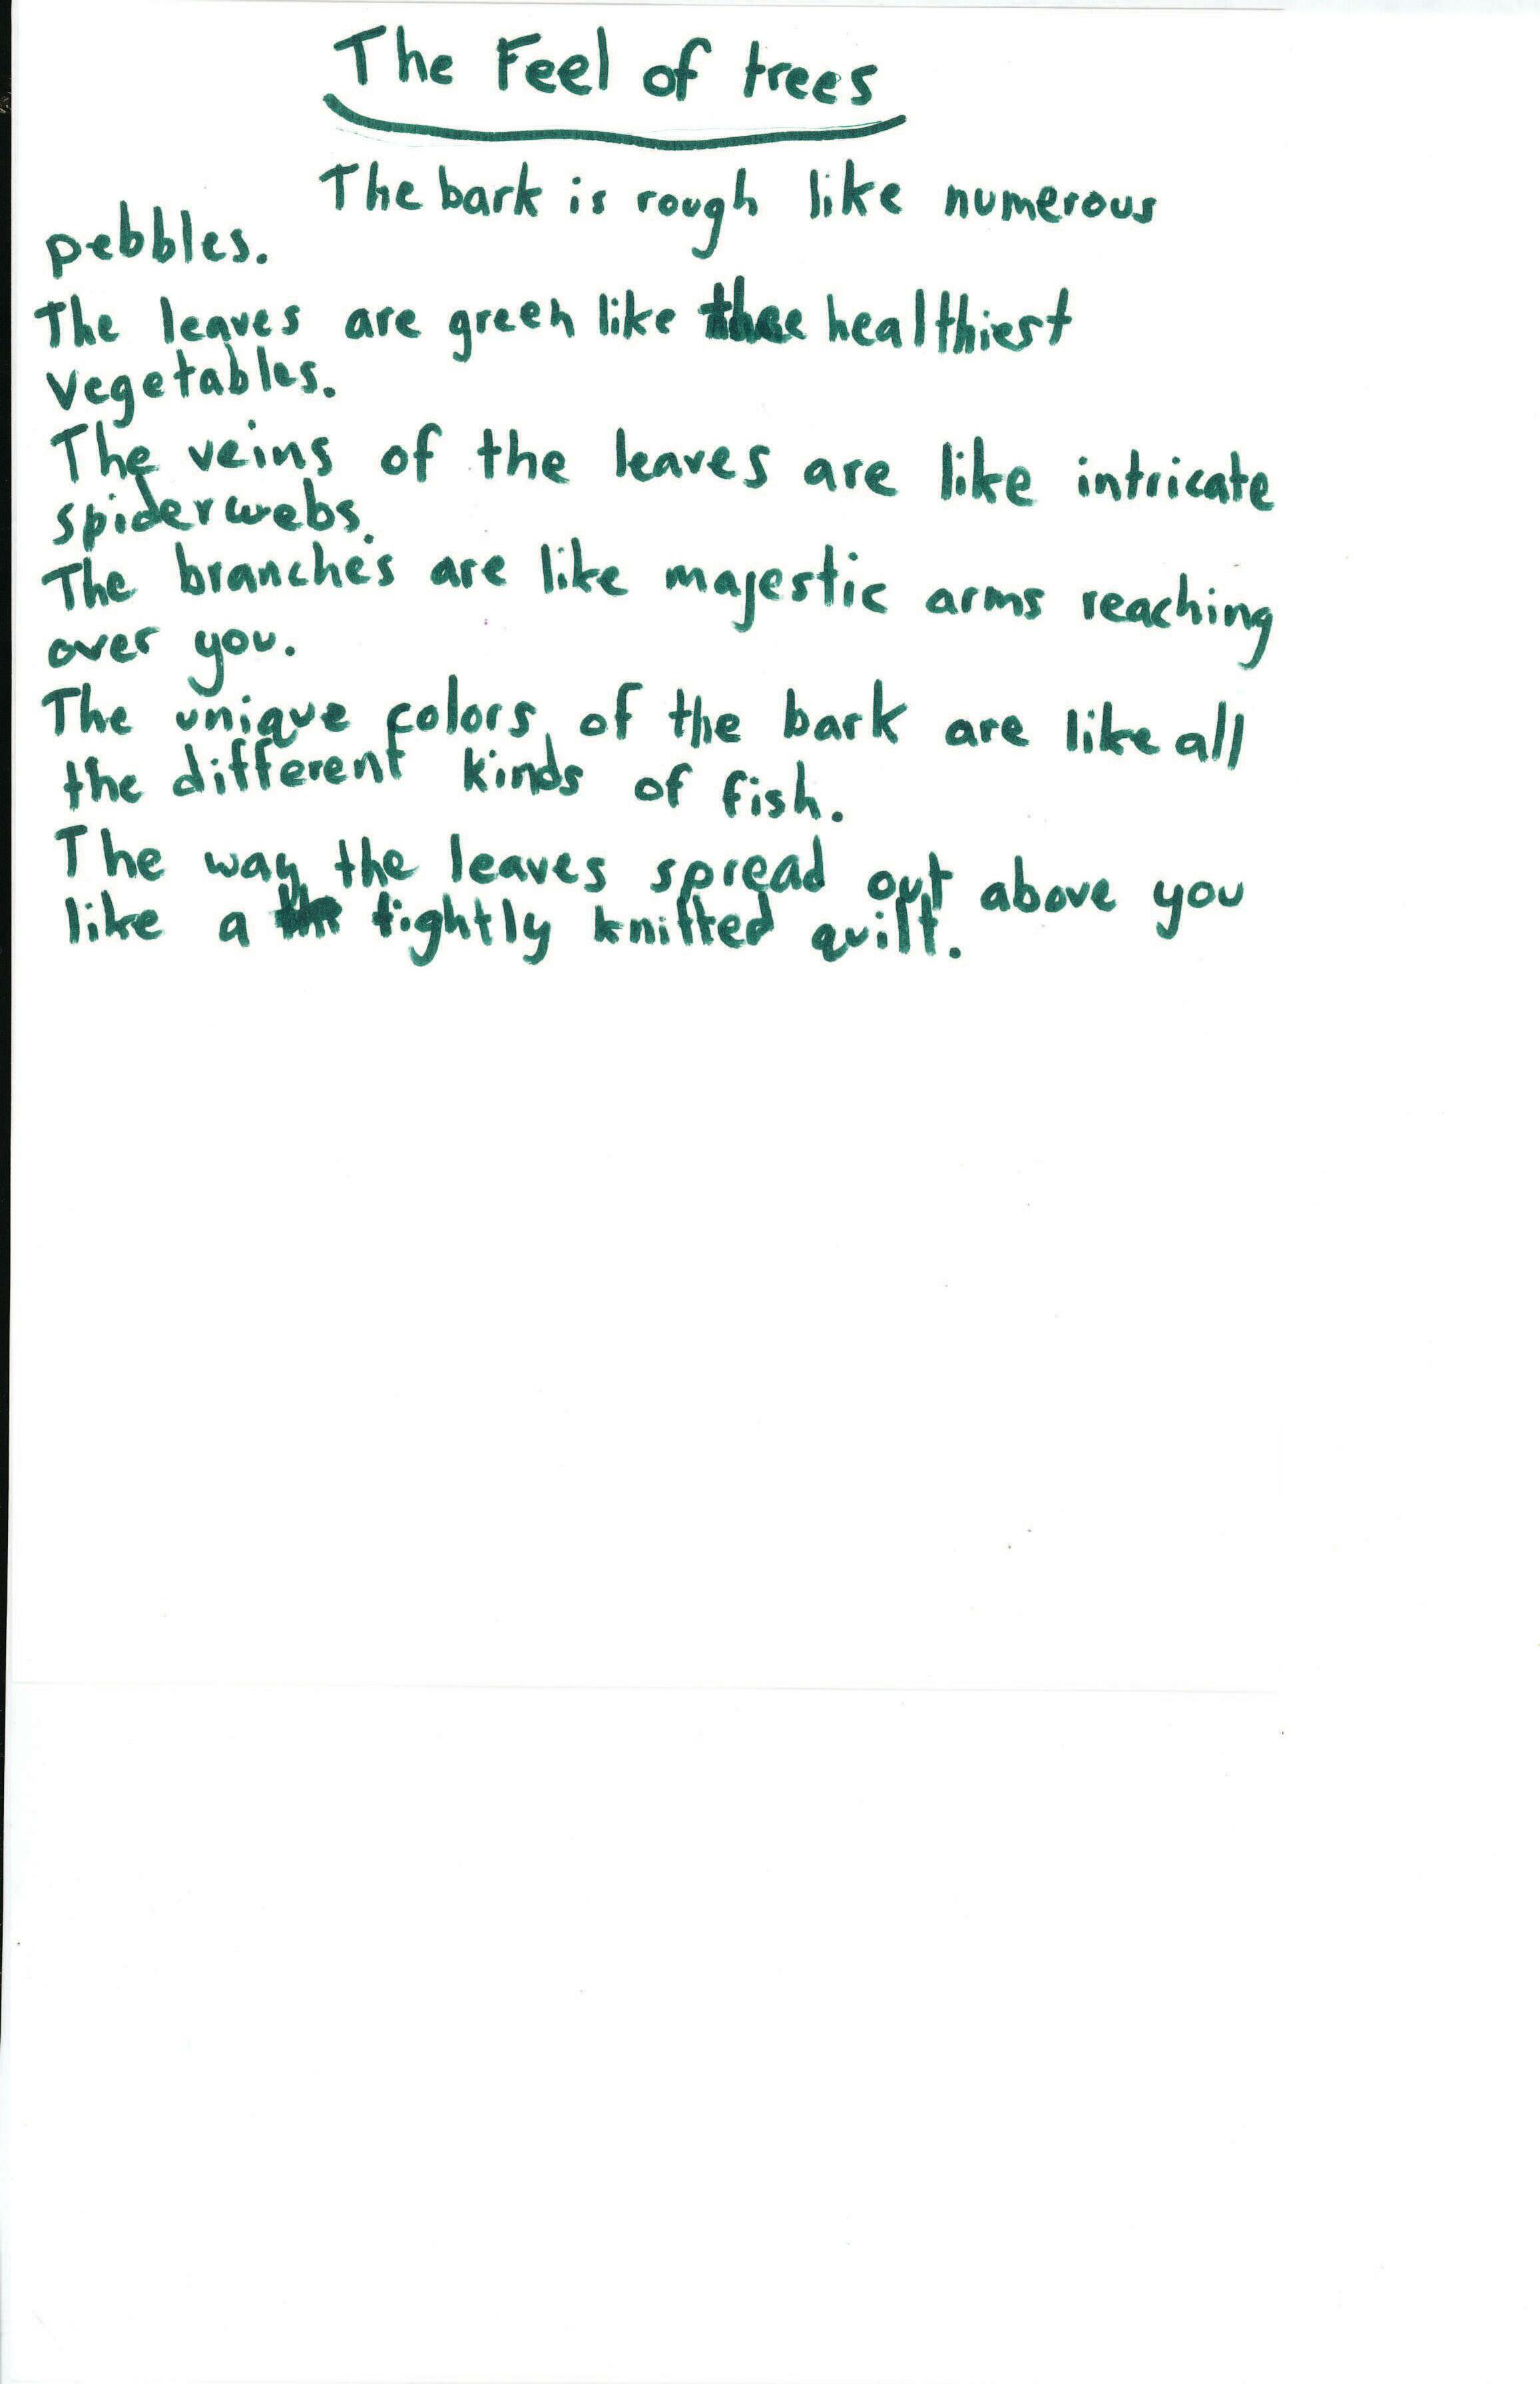 The Feel of trees
The bark is rough like numerous
pebbles.
The leaves are green like the healthiest
vegetables.
The veins of the leaves are like intricate
spiderwebs.
The branches are like majestic arms reaching
over you.
The unique colors of the bark are like all
the different kinds of fish.
The way the leaves spread out above you
like a tightly knitted quilt.